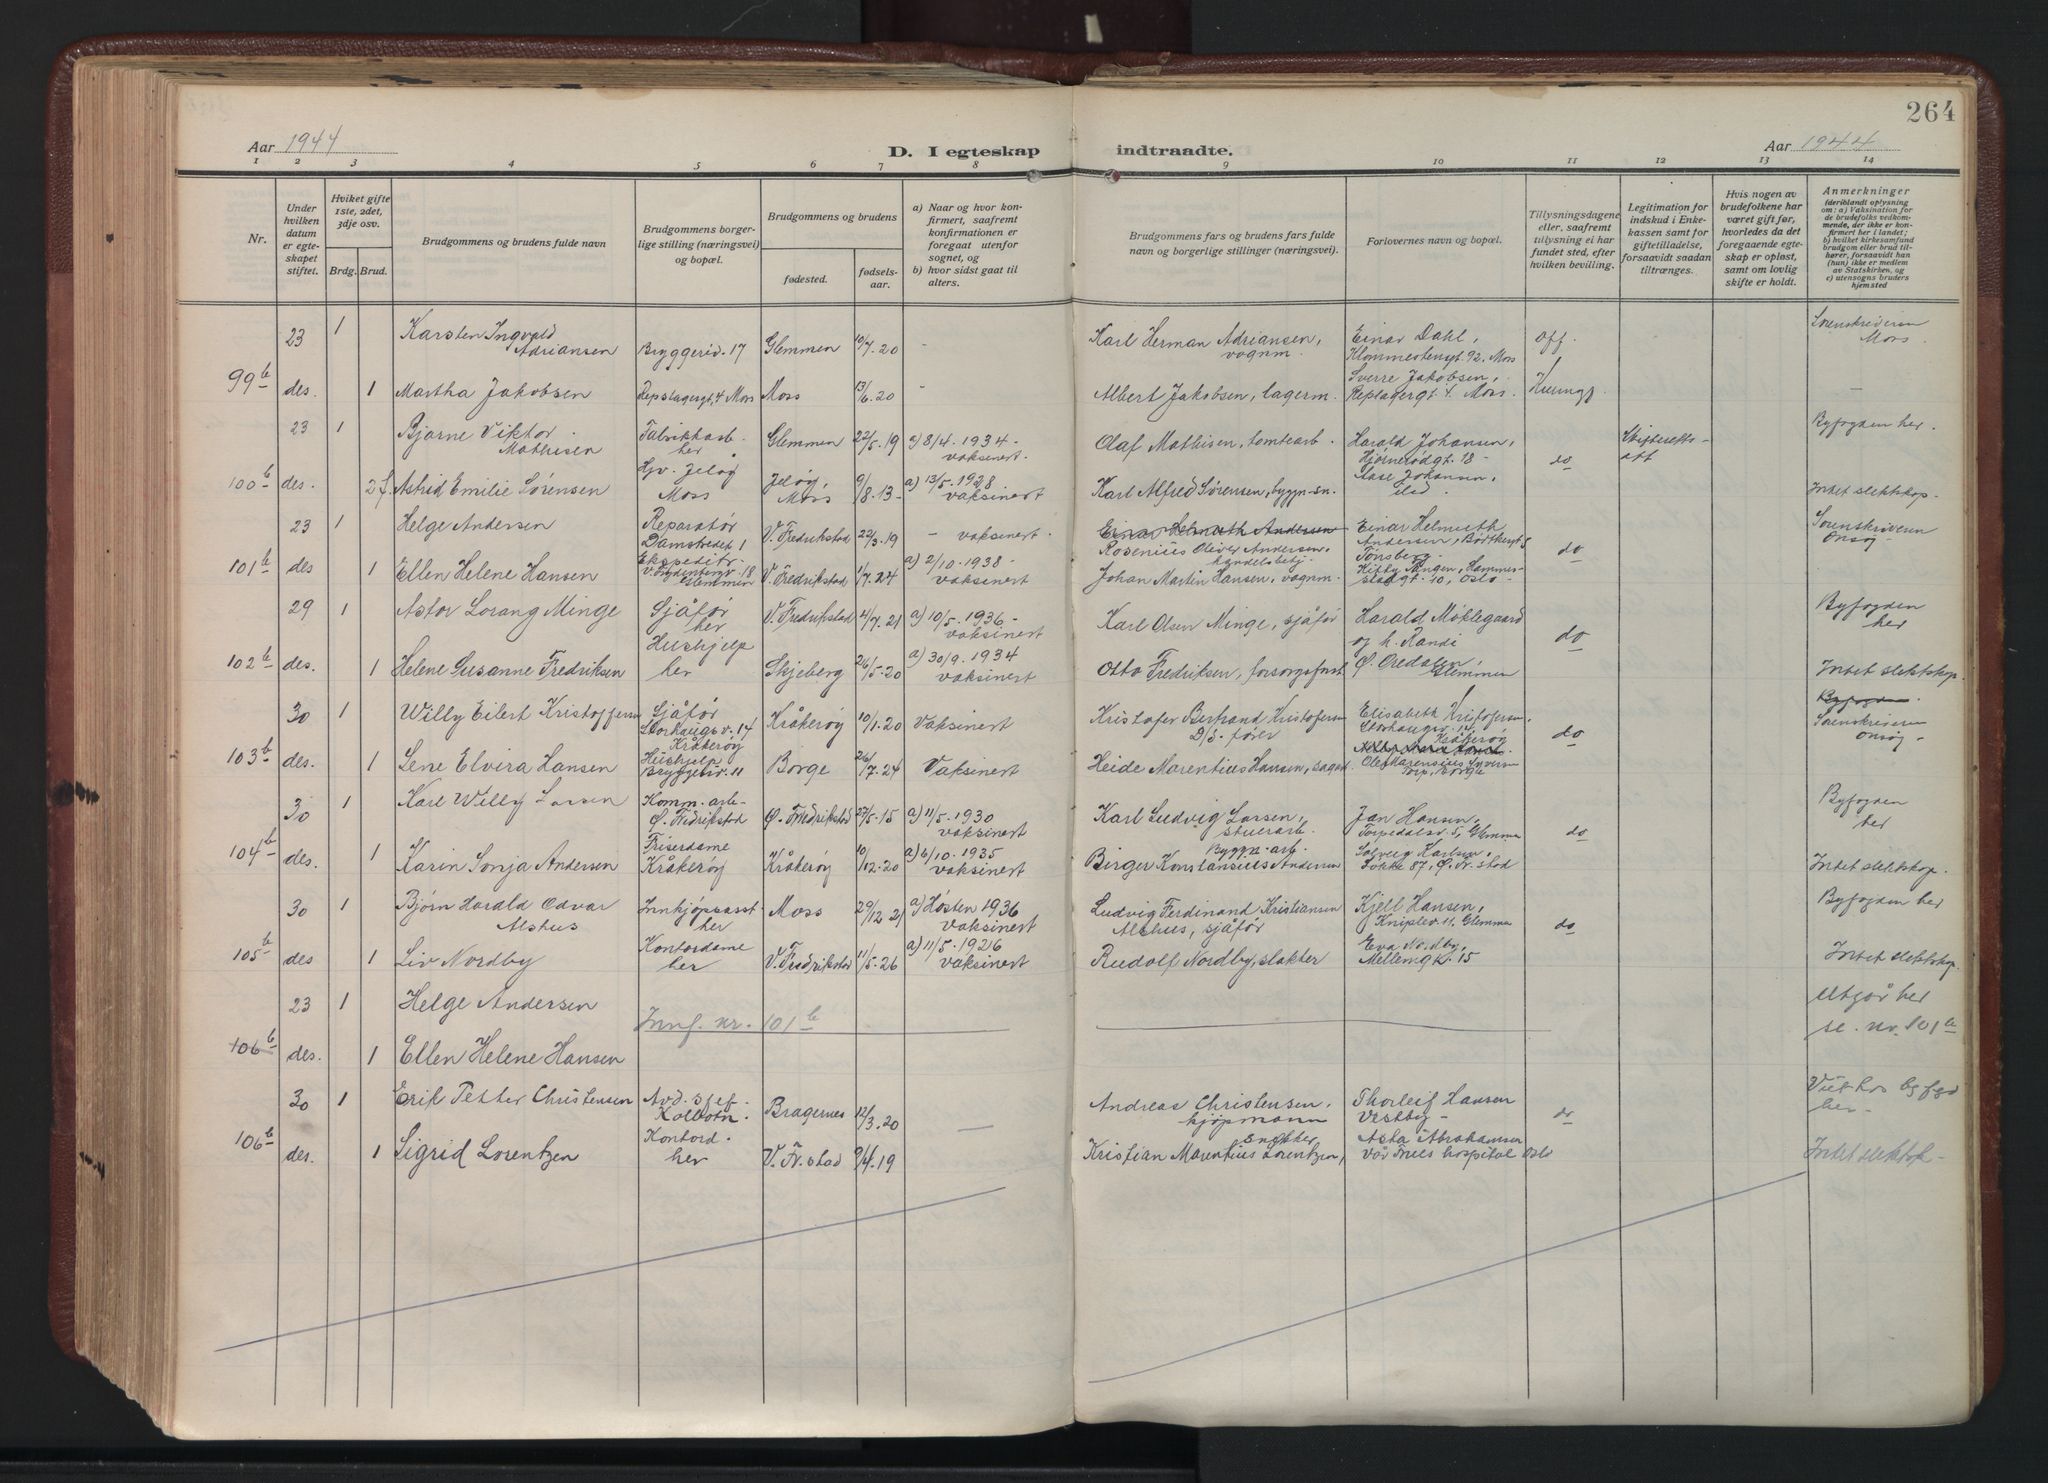 264
Aar 1944
D. I egteskap
indtraadte.
Aar 1944
1 2 3 4 5 6 7 8 9 10 11 12 13 14
Nr.
Under hvilken datum er egteskapet stiftet.
Hviket gifte 1ste, 2det, 3dje osv.
Brdg. Brud.
Brudgommens og brudens fulde navn
Brudgommens borgerlige stilling (næringsvei) og bopæl.
Brudgommens og brudens
fødested.
fødselsaar.
a) Naar og hvor konfirmert, saafremt konfirmationen er foregaat utenfor sognet, og
b) hvor sidst gaat til alters.
Brudgommens fars og brudens fars fulde navn og borgerlige stillinger (næringsvei).
Forlovernes navn og bopæl.
Tillysningsdagene eller, saafremt tillysning ei har fundet sted, efter hvilken bevilling.
Legitimation for indskud i Enkekassen samt for giftetilladelse, forsaavidt saadan tiltrænges.
Hvis nogen av brudefolkene har været gift før, hvorledes da det foregaaende egteskap er opløst, samt om lovlig skifte er holdt.
Anmerkninger
(deriblandt oplysning om: a) Vaksination for de brudefolks vedkommende, der ikke er konfirmert her i landet; b) hvilket kirkesamfund brudgom eller brud tilhører, forsaavidt han (hun) ikke er medlem av Statskirken, og c) utensogns bruders hjemsted
23 1 Karsten Ingvald Adriansen Bryggeriv. 17 Glemmen 10/7.20 - Karl Herman Adriansen, vognm. Einar Dahl, 92, Moss Off. Sorenskriveren Moss
99 b des. 1 Martha Jakobsen Repslagergt. 4 Moss Moss 13/6.20 - Albert Jakobsen, lagerm. Sverre Jakobsen, Repslagergt. 4. Moss -
23 1 Bjarne Viktor Mathisen Fabrikkarb. her Glemmen 22/5.19 a) 8/4.1934 - vaksinert. Olaf Mathisen, tomtearb. Harald Johansen, Hjørnerødgt. 18 - Skifteretts-att Byfogden her.
100 b des. 2 f. Astrid Emilie Sørensen Hv. Jeløy Moss Jeløy, Moss 9/8.13- a) 13/5.1928 - vaksinert Karl Alfred Sørensen, byggn.sn. Aase Johansen, do Intet slektskap.
23 1 Helge Andersen Reparatør Damstredet 1 V. Fredrikstad 22/3.19 - vaksinert. Einar Helmuth Andersen Rosenius Oliver Andersen, handelsbetj. Einar Helmuth Andersen, Tønsberg do Sorenskriveren Onsøy
101 b des 1 Ellen Helene Hansen Ekspeditr. Glemmen V. Fredrikstad 1/7.24 a) 2/10.1938 - vaksinert Johan Martin Hansen, vognm. Kitty Ringen, 10, Oslo
29 1 Astor Lorang Minge Sjåfør her V. Fredrikstad 4/7.21 a) 10/5.1936 - vaksinert Karl Olsen Minge, sjåfør Harald Møklegaard og h. Randi do Byfogden her
102 b des. 1 Helene Susanne Fredriksen Hushjelp her Skjeberg 26/5.20 a) 30/9.1934 vaksinert Otto Fredriksen, forsorgsfunt. Ø. Oredalen Glemmen Intet slektskap.
30 1 Willy Eilert Kristoffersen Sjåfør Storhaugv. 14 Kråkerøy Kråkerøy 10/1.20 Vaksinert Kristofer Bertrand Kristofersen D/S. fører Elisabeth Kristofersen Storhaugv. 14 Kråkerøy do Byfogden Sorenskriveren Onsøy -
103 b des. 1 Lene Elvira Hansen Hushjelp Bryggeriv. 11 Borge 26/7.24 Vaksinert Heide Marentius Hansen, sagarb. Ole Marensius Torp, Borge
30 1 Karl Willy Larsen Komm. arb. Ø. Fredrikstad Ø. Fredrikstad 27/5.15 a) 11/5.1930 vaksinert Karl Ludvig Larsen, stuerarb. Jan Hansen, Torpedalsv. 5, Glemmen do Byfogden her
104 b des. 1 Karin Sonja Andersen Friserdame Kråkerøy Kråkerøy 10/12.20 a) 6/10.1935 vaksinert Birger Konstansius Andersen Byggn.arb. Solveig Karlsen, Lökke 87, Ø. Fr.stad Intet slektskap.
30 1 Bjørn Harald Odvar Alshus Innkjøpsasst her Moss 29/12 21 a) Høsten 1936 vaksinert Ludvig Ferdinand Kristiansen Alshus, sjåfør Kjell Hansen, Kniplev. 11, Glemmen do Byfogden her
105 b des 1 Liv Nordby Kontordame her V. Fredrikstad 11/5.26 a) 11/5.1926 vaksinert Rudolf Nordby, slakter Eva Nordby, Mellemgt. 15 Intet slektskap.
23 1 Helge Andersen Innf. nr. 101 b Utgår her se. nr. 101 b
106 b des. 1 Ellen Helene Hansen
30 1 Erik Petter Christensen Avd. sjef Kolbotn. Bragernes 12/3.20 - Andreas Christensen, kjøpmann Thorleif Hansen Vestby - do Viet hos byfogd her -
106 b des. 1 Sigrid Lorentzen Kontord. her V. Fr.stad 9/4.19 Kristian Marentius Lorentzen, snekker Asta Abrahamsen Vor Frues hospital Oslo Intet slektsk. -